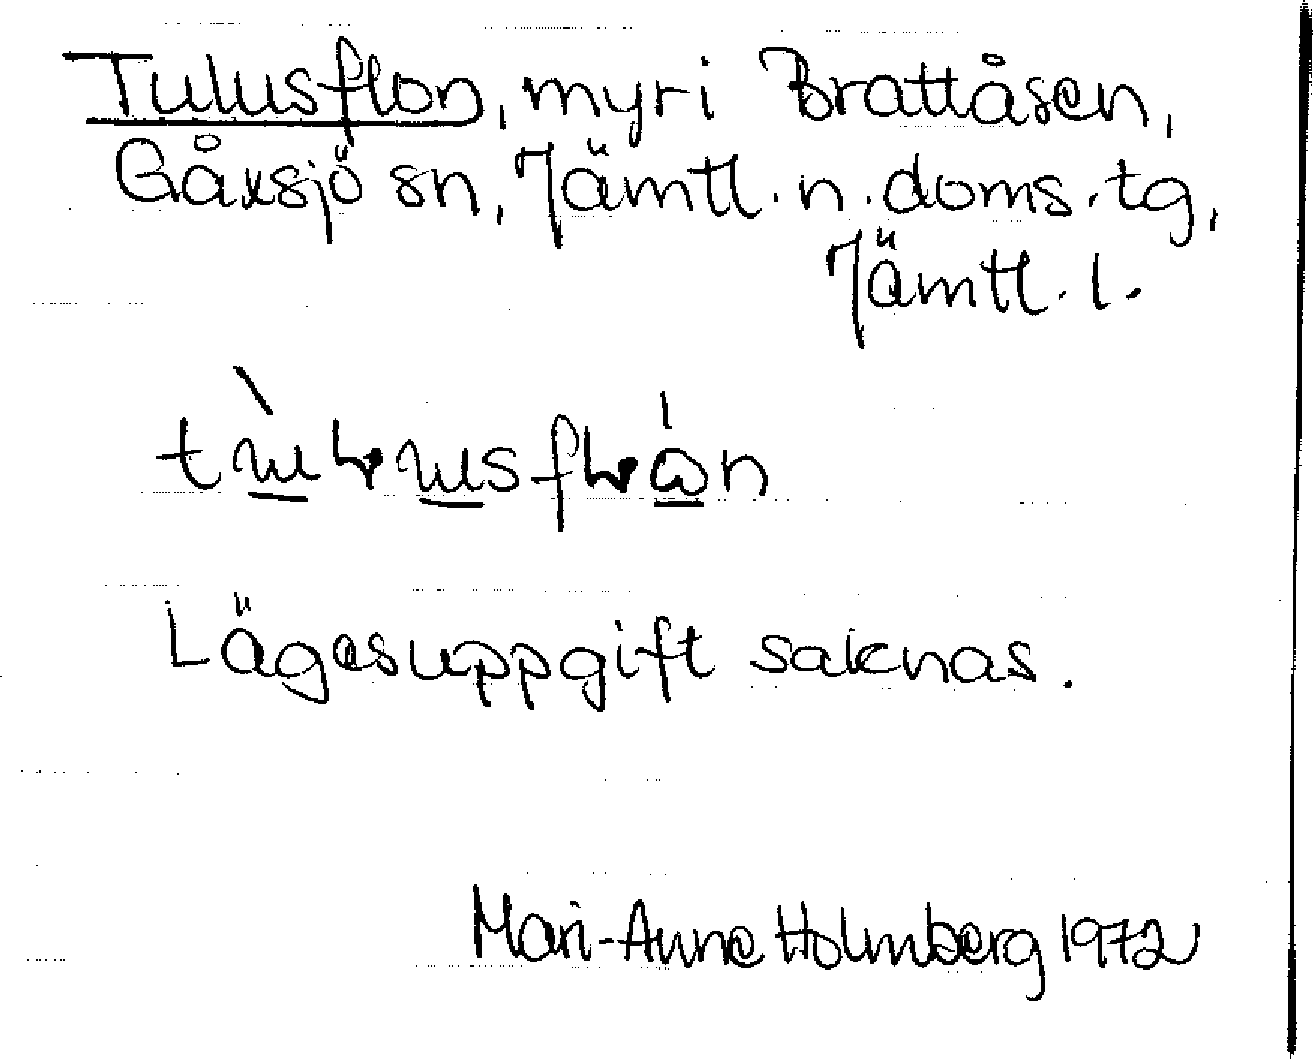 Tulusflon, myr i Brattåsen,
Gåxsjö sn, Jämtl. n. doms. tg,
Jämtl. l.
Lägesuppgift saknas.
Mari-Anne Holmberg 1972